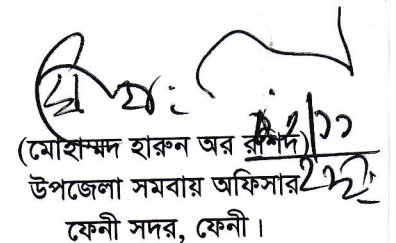 (মোহাম্মদ হারুন অর রশিদ)
উপজেলা সমবায় অফিসার
ফেনী সদর, ফেনী।